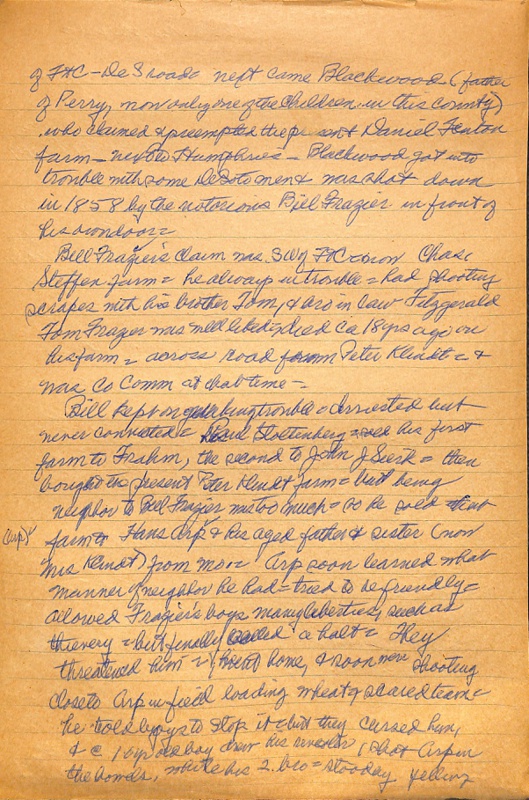 of F+C - De S roads next came Blackwood (father
of Perry, now only one of the children in this county)
who claimed & preempted the present Daniel Fenton
farm - next to Humphries - Blackwood got into
trouble with some DeSoto men & was shot down
in 1858 by the notorious Bill Frazier in front of
his own door =
Bill Frazier's claim was SW of F+C = now Chas.
Steffen farm = he always in trouble = had shooting
scrapes with his brother Tom, & bro in law Fitzgerald
Tom Frazier was well liked, died ca 18 yrs ago on
his farm = across road from Peter Klindt = &
was Co Comm at that time =
Bill kept on making trouble = arrested but
never convicted = Blottenberg = sold his first
farm to Frahm, the second to John J Sierk = then
bought the present Peter Klindt farm = but being
neighbor to Bill Frazier was too much = so he sold that
farm to Hans Arp & his aged father & sister (now
Mrs Klindt) from Mo = Arp soon learned what
(Arp)
manner of neighbor he had = tried to be friendly =
allowed Frazier's boys many liberties, such as
thievery = but finally called a halt = They
threatened him = home, & soon more shooting
close to Arp in field loading wheat & scared team =
he told boys to stop it = but they cursed him,
& 1 yr old boy drew his revolver, shot Arp in
the bowels, while his 2. bro = stood by yelling